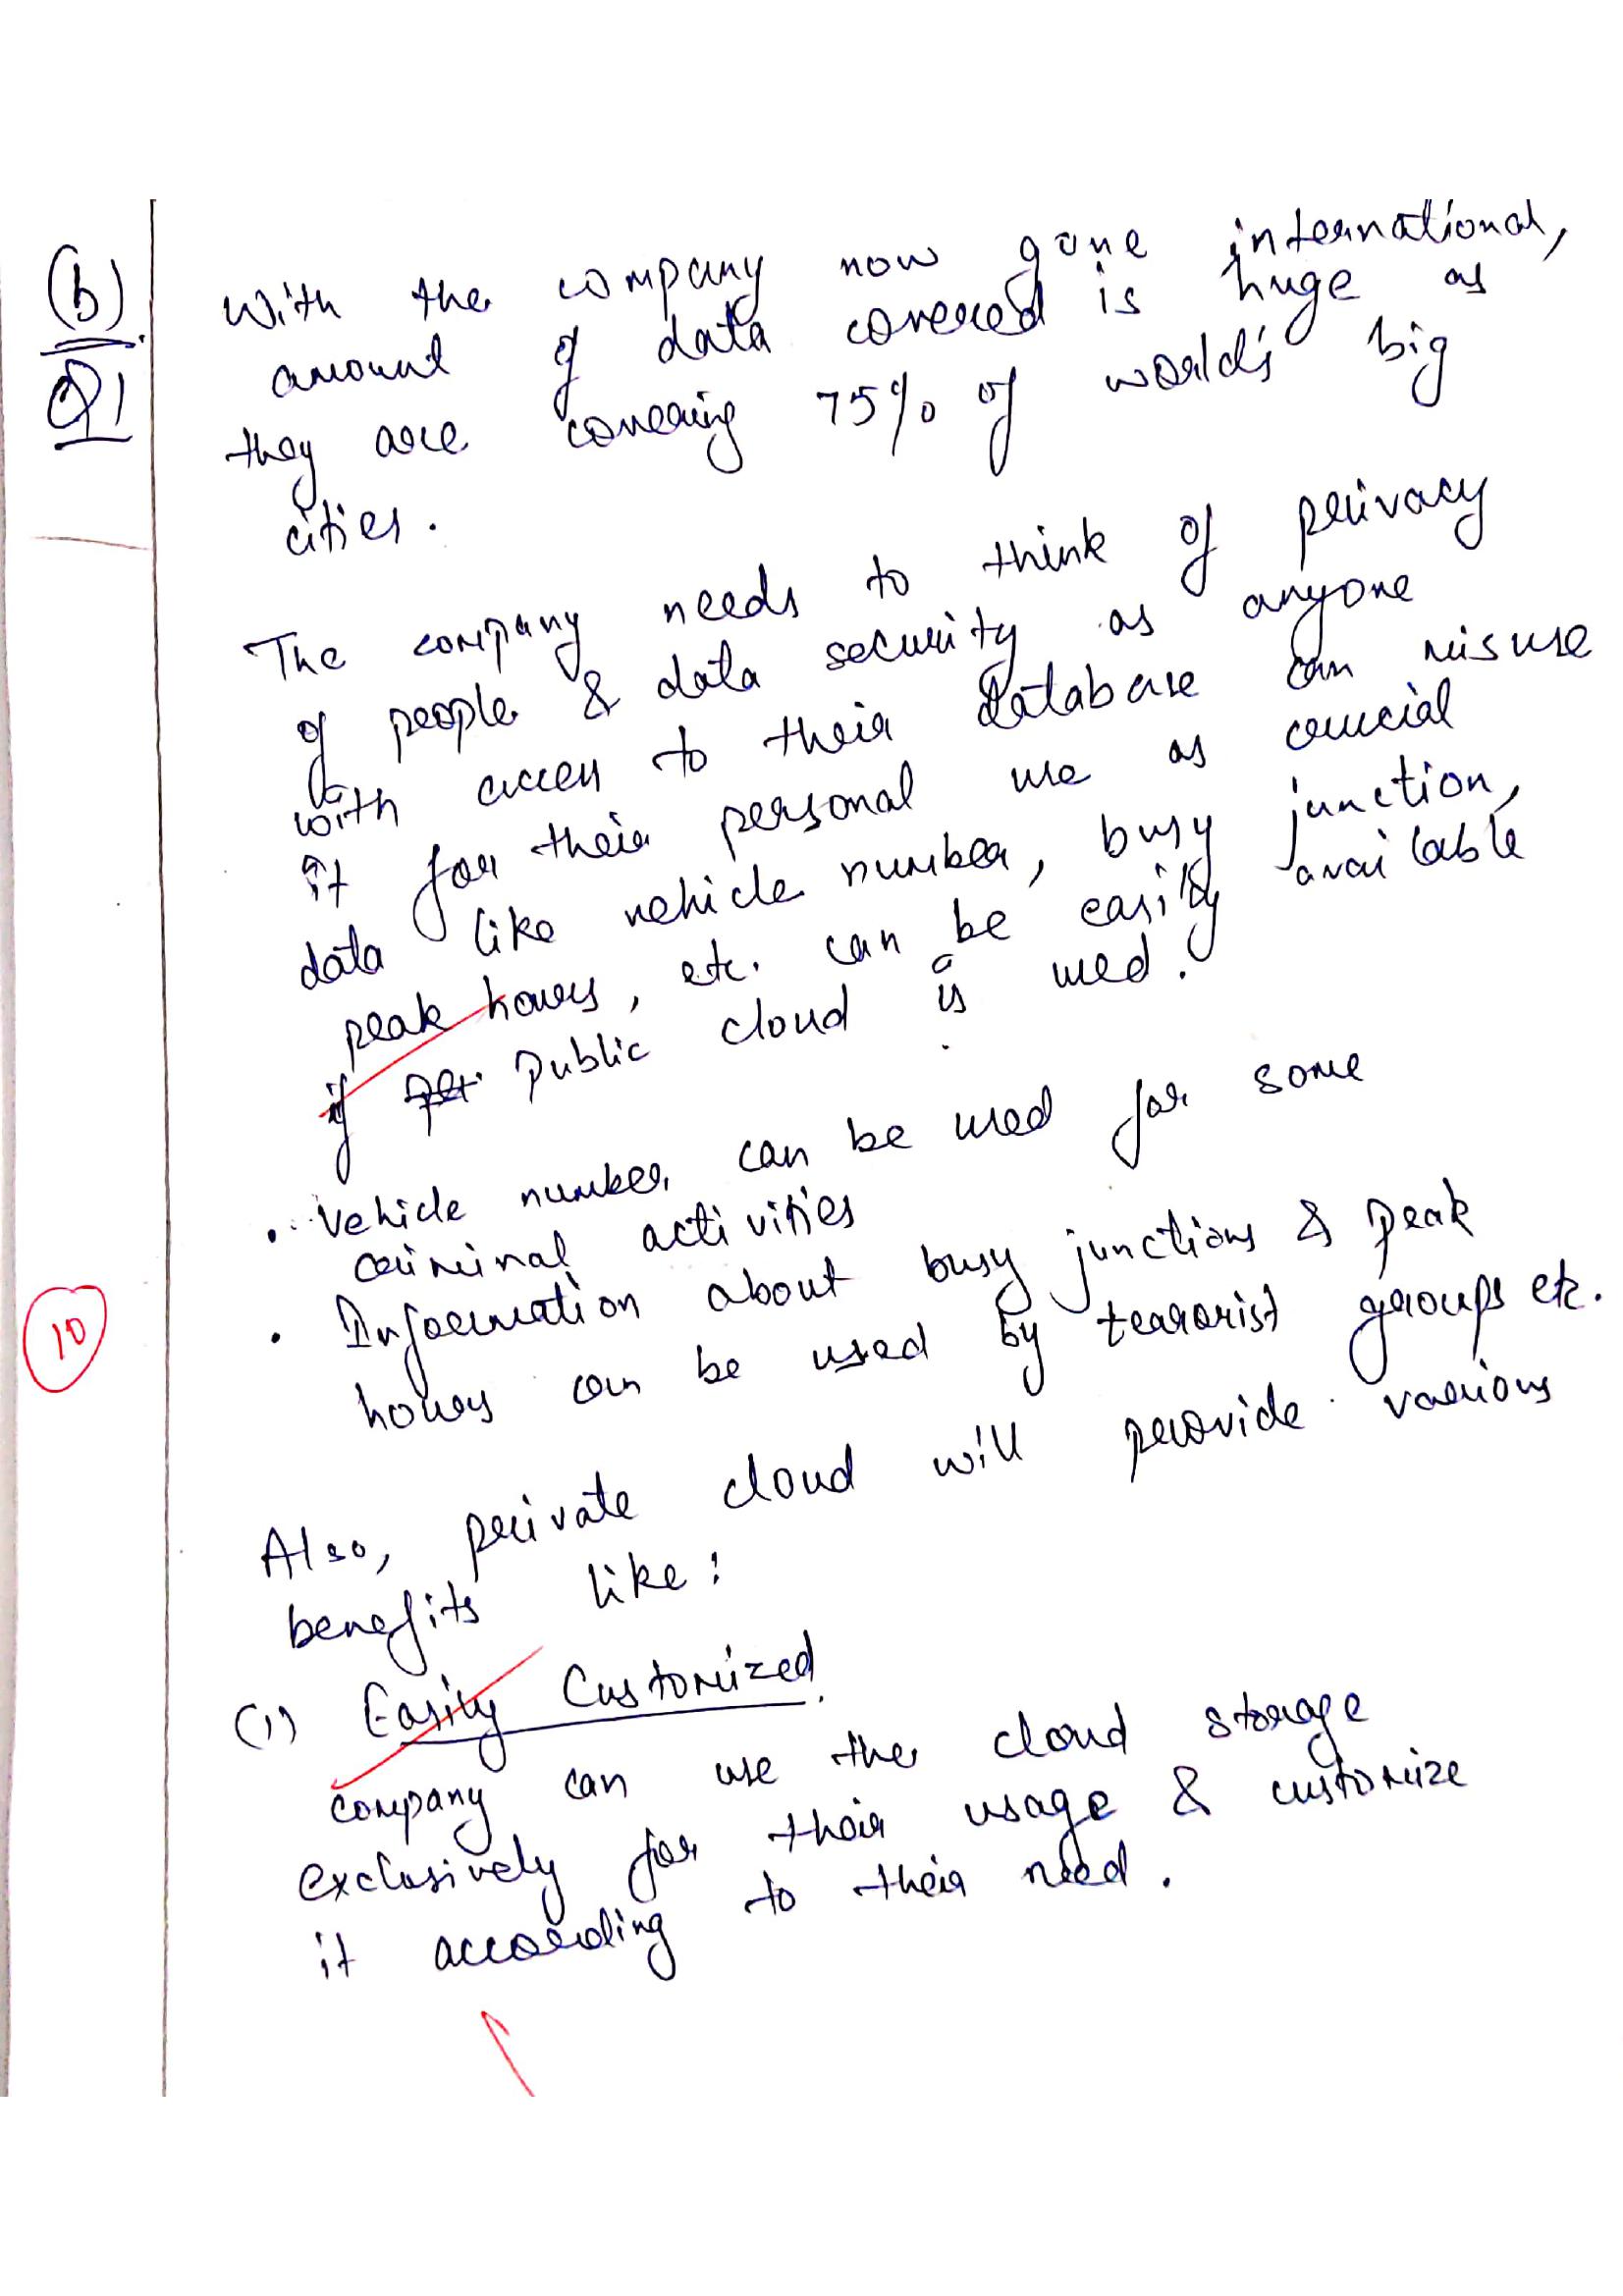 (b)
Q1
With the company now gone international,
amount of data covered is huge as
they are covering 75% of world's big
cities.
The company needs to think of privacy
of people & data security as anyone
with access to their database can misuse
it for their personal use as crucial
data like vehicle number, busy junction,
peak hours, etc. can be easily available
if public cloud is used.
• Vehicle number can be used for some
criminal activities
• Information about busy junctions & peak
hours can be used by terrorist groups etc.
10
Also, private cloud will provide various
benefits like:
(1) Easily Customized.
company can use the cloud storage
exclusively for their usage & customize
it according to their need.